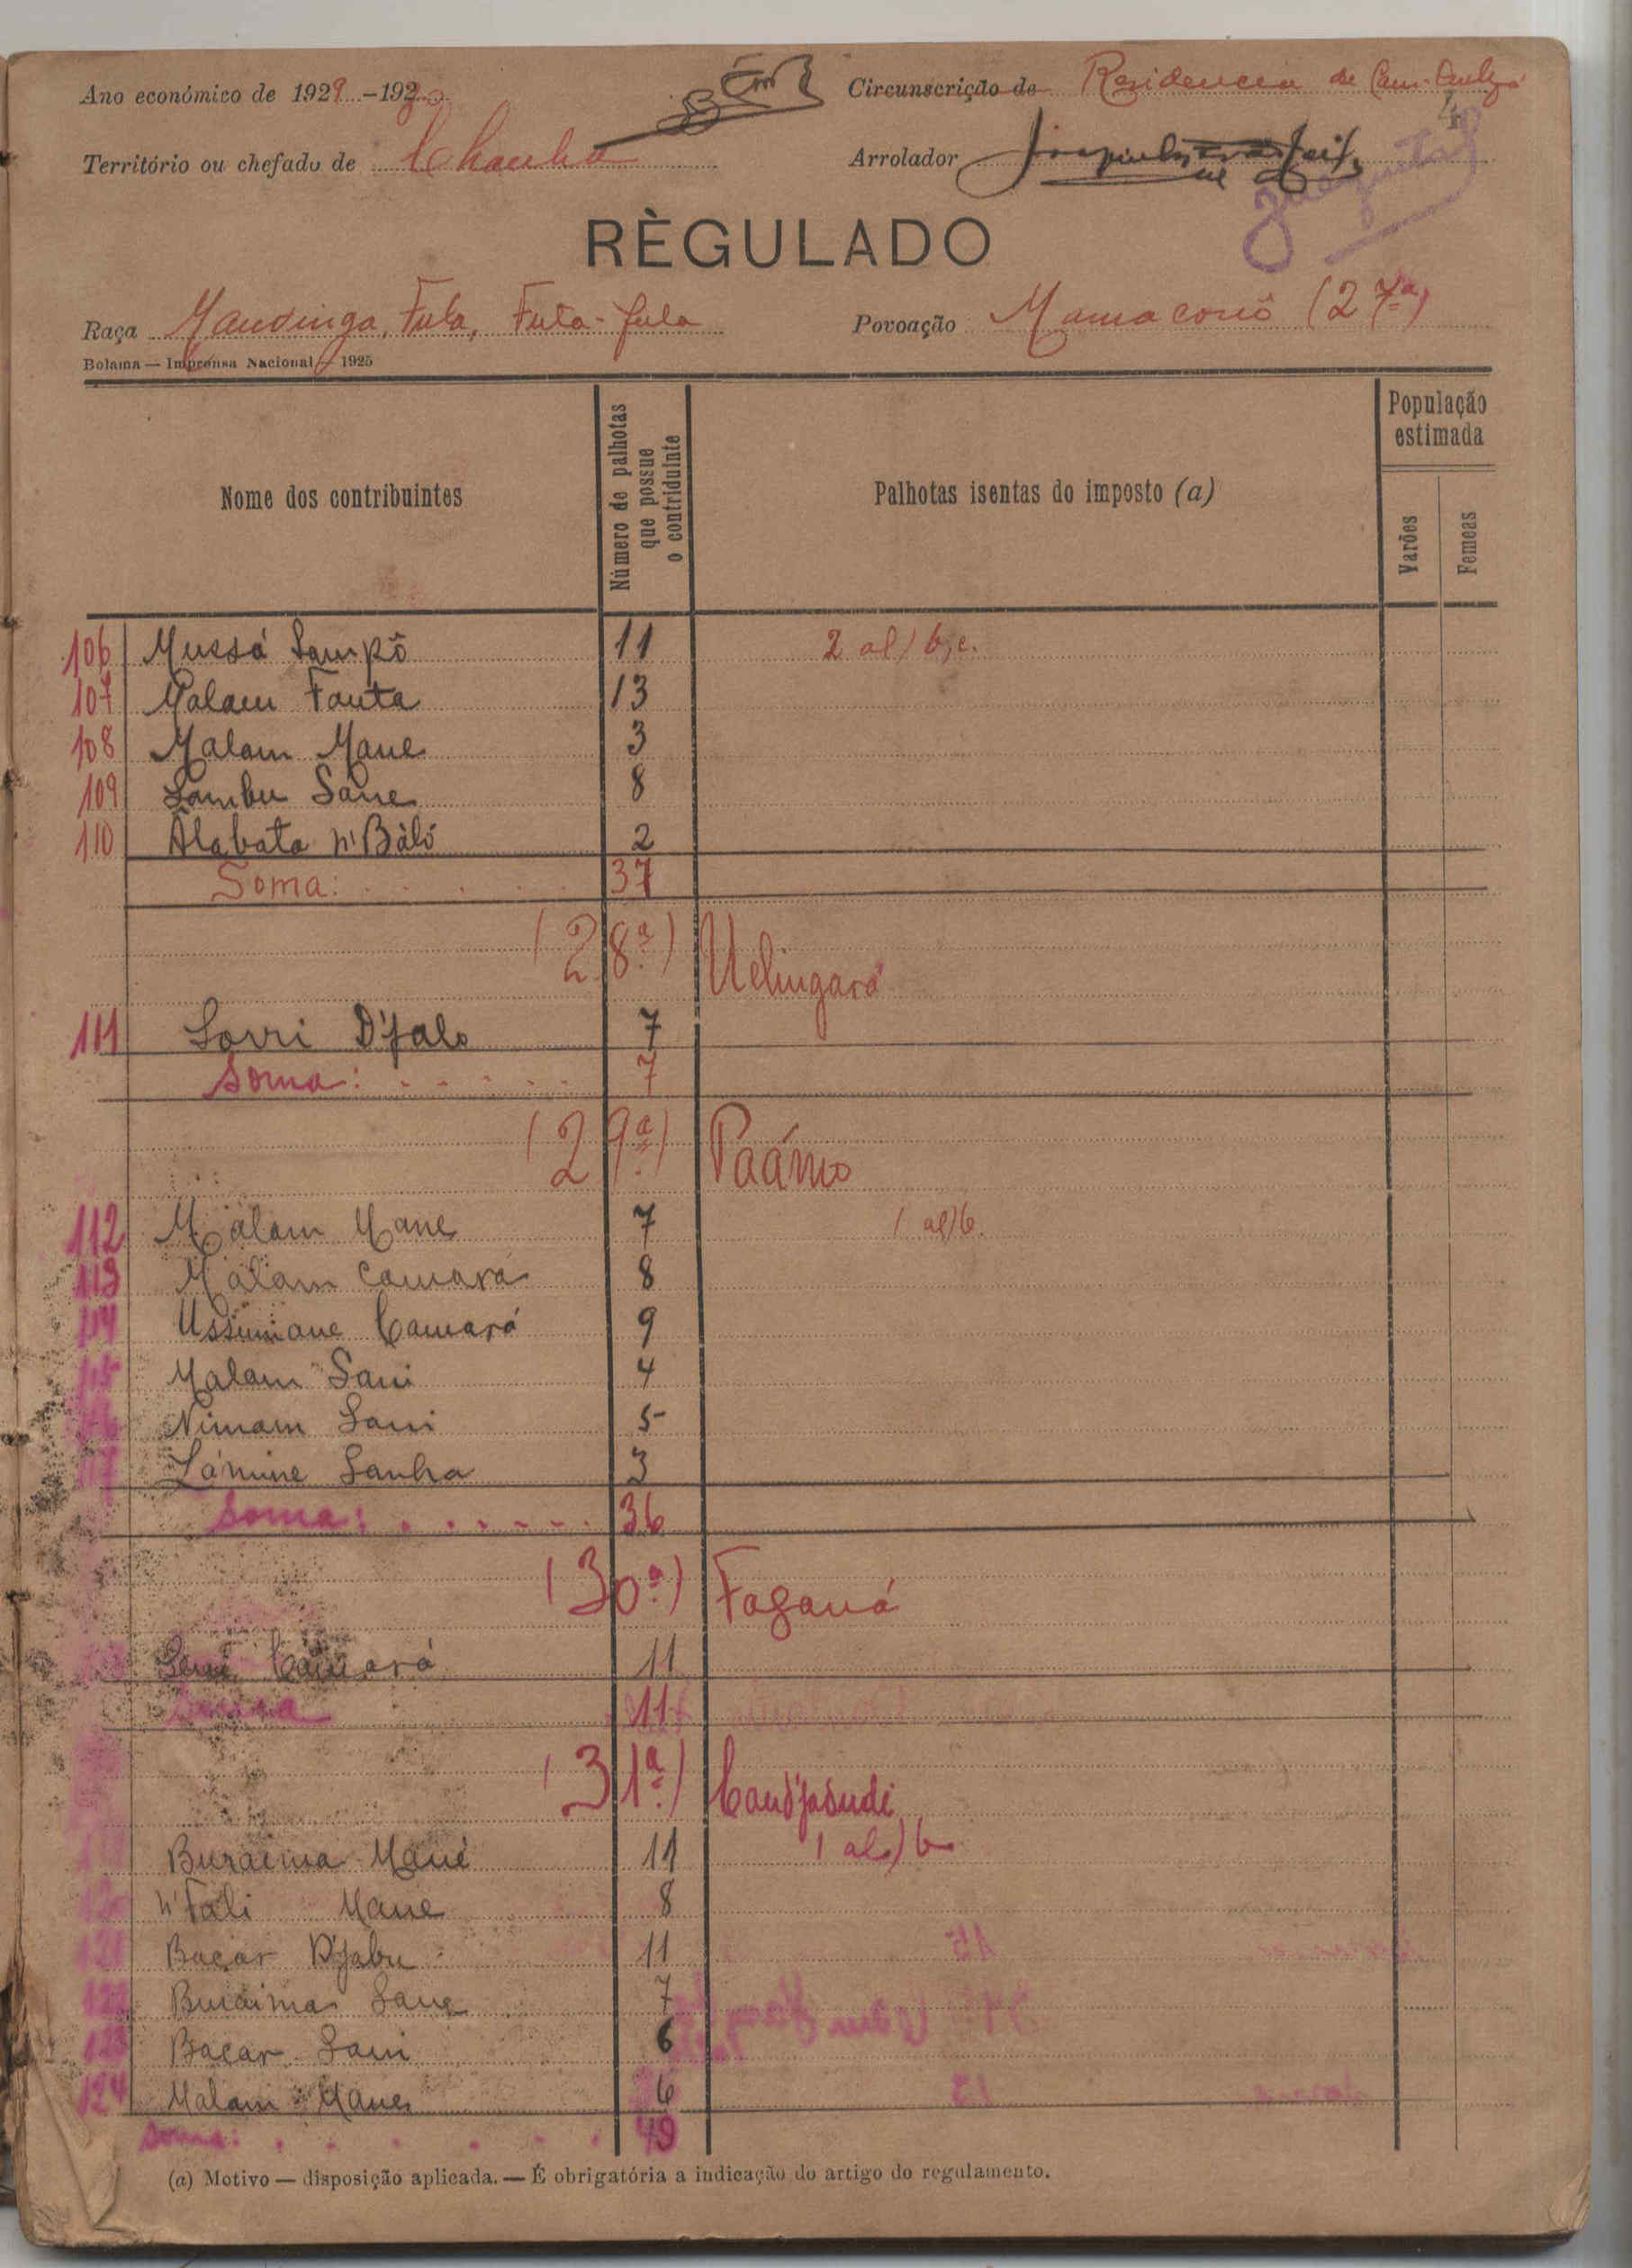 Ano económico de 1929 -1930
Circunscrição de Residencia de
4
Território ou chefado de Chanha
Arrolador
RÈGULADO
Raça Mandinga, Fula, Futa-fula
Povoação Mamaconó (27ª)
Bolama — Imprensa Nacional — 1925
Nome dos contribuintes
Número de palhotas que possue o contriduinte
Palhotas isentas do imposto (a)
População estimada
Varões
Femeas
106 Mussá Sampô 11 2 al) b, c.
107 Malam Fanta 13
108 Malam Mane 3
109 Sambu Sane 8
110 Alabata n'Bàló 2
Soma: . . . . . 37
(28ª) Uelingará
111 Sorri D'jalo 7
Soma: . . . . . . 7
(29ª) Paámo
112 Malam Mane 7 1 al) b.
113 Malam Camará 8
114 Ussumane Camará 9
115 Malam Sani 4
116 Nimam Sani 5
117 Lámine Sanha 3
Soma: . . . . . . 36
(30ª) Faganá
Camará 11
Soma 11
(31ª) Cand'jasudi
Buraima Mané 11 1 al) b
120 n'Fali Mane 8
121 Bacar D'jabu 11
122 Buraima Sane 7
123 Bacar Sani 6
124 Malam Mane 6
Soma: . . . . . . 49
(a) Motivo — disposição aplicada. — É obrigatória a indicação do artigo do regulamento.